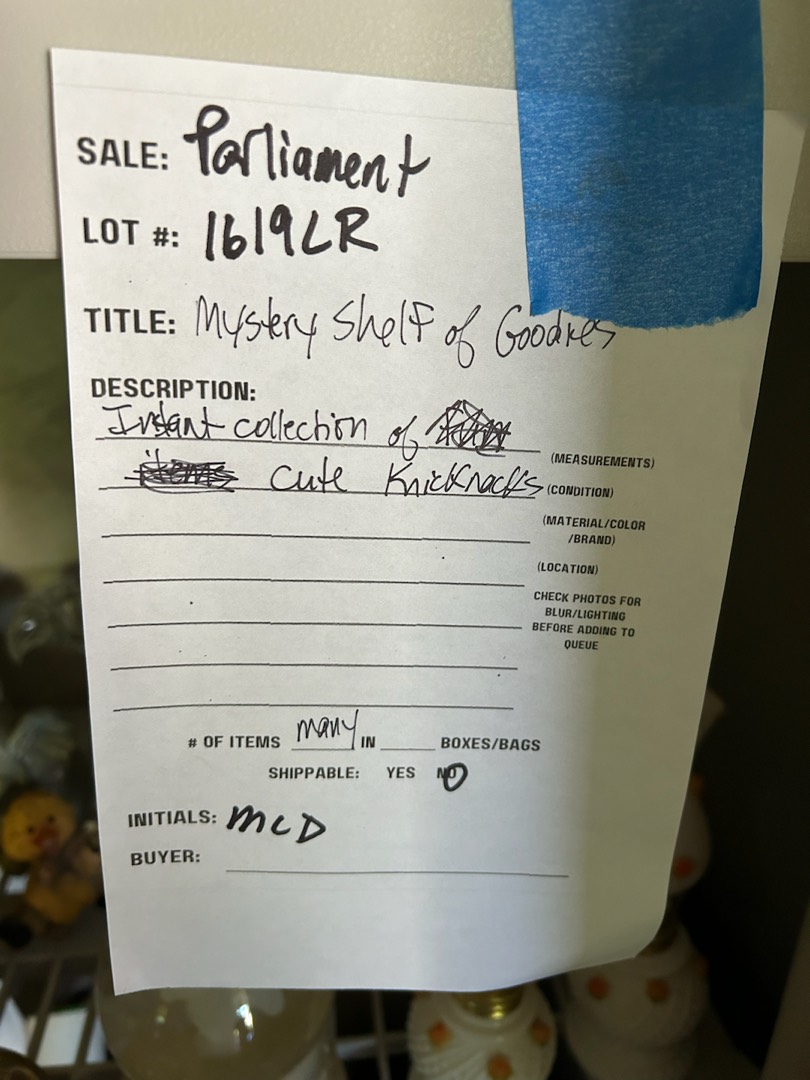 SALE: Parliament
LOT #: 1619LR
TITLE: Mystery Shelf of Goodies
DESCRIPTION:
Instant collection of
(MEASUREMENTS)
cute KnicKnacks (CONDITION)
(MATERIAL/COLOR
/BRAND)
(LOCATION)
CHECK PHOTOS FOR
BLUR/LIGHTING
BEFORE ADDING TO
QUEUE
# OF ITEMS many IN BOXES/BAGS
SHIPPABLE: YES NO
INITIALS: MCD
BUYER: